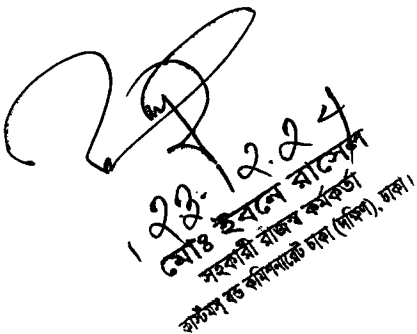 ২২.১২.২৪
মোঃ ইবনে রাসেল
সহকারী রাজস্ব কর্মকর্তা
কাস্টমস্ বন্ড কমিশনারেট ঢাকা (দক্ষিণ), ঢাকা।